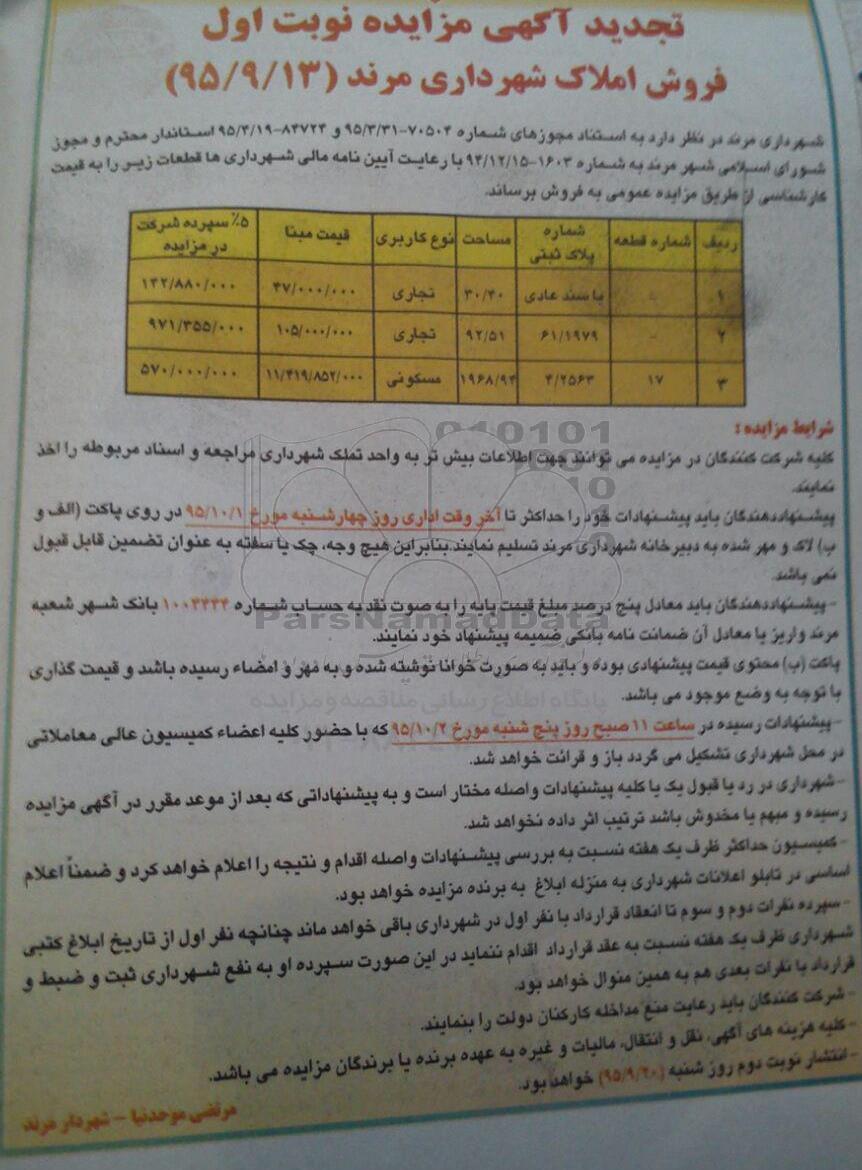 تجدید آگهی مزایده نوبت اول
فروش املاک شهرداری مرند (۹۵/۹/۱۳)
شهرداری مرند در نظر دارد به استناد مجوزهای شماره ۷۰۵۰۴-۹۵/۳/۳۱ و ۸۴۷۲۴-۹۵/۴/۱۹ استاندار محترم و مجوز
شورای اسلامی شهر مرند به شماره ۱۶۰۳-۹۴/۱۲/۱۵ با رعایت آیین نامه مالی شهرداری ها قطعات زیر را به قیمت
کارشناسی از طریق مزایده عمومی به فروش برساند.
ردیف شماره قطعه شماره پلاک ثبتی مساحت نوع کاربری قیمت مبنا ۵٪ سپرده شرکت در مزایده
۱ - با سند عادی ۳۰/۴۰ تجاری ۴۷/۰۰۰/۰۰۰ ۱۴۲/۸۸۰/۰۰۰
۲ - ۶۱/۱۹۷۹ ۹۲/۵۱ تجاری ۱۰۵/۰۰۰/۰۰۰ ۹۷۱/۳۵۵/۰۰۰
۳ ۱۷ ۴/۲۵۶۳ ۱۹۶۸/۹۴ مسکونی ۱۱/۴۱۹/۸۵۲/۰۰۰ ۵۷۰/۰۰۰/۰۰۰
شرایط مزایده :
کلیه شرکت کنندگان در مزایده می توانند جهت اطلاعات بیش تر به واحد تملک شهرداری مراجعه و اسناد مربوطه را اخذ
نمایند.
پیشنهاددهندگان باید پیشنهادات خود را حداکثر تا آخر وقت اداری روز چهارشنبه مورخ ۹۵/۱۰/۱ در روی پاکت (الف و
ب) لاک و مهر شده به دبیرخانه شهرداری مرند تسلیم نمایند.بنابراین هیچ وجه، چک یا سفته به عنوان تضمین قابل قبول
نمی باشد.
-پیشنهاددهندگان باید معادل پنج درصد مبلغ قیمت پایه را به صوت نقد به حساب شماره ۱۰۰۳۴۴۴ بانک شهر شعبه
مرند واریز یا معادل آن ضمانت نامه بانکی ضمیمه پیشنهاد خود نمایند.
پاکت (ب) محتوی قیمت پیشنهادی بوده و باید به صورت خوانا نوشته شده و به مهر و امضاء رسیده باشد و قیمت گذاری
با توجه به وضع موجود می باشد.
-پیشنهادات رسیده در ساعت ۱۱ صبح روز پنج شنبه مورخ ۹۵/۱۰/۲ که با حضور کلیه اعضاء کمیسیون عالی معاملاتی
در محل شهرداری تشکیل می گردد باز و قرائت خواهد شد.
-شهرداری در رد یا قبول یک یا کلیه پیشنهادات واصله مختار است و به پیشنهاداتی که بعد از موعد مقرر در آگهی مزایده
رسیده و مبهم یا مخدوش باشد ترتیب اثر داده نخواهد شد.
-کمیسیون حداکثر ظرف یک هفته نسبت به بررسی پیشنهادات واصله اقدام و نتیجه را اعلام خواهد کرد و ضمناً اعلام
اسامی در تابلو اعلانات شهرداری به منزله ابلاغ به برنده مزایده خواهد بود.
-سپرده نفرات دوم و سوم تا انعقاد قرارداد با نفر اول در شهرداری باقی خواهد ماند چنانچه نفر اول از تاریخ ابلاغ کتبی
شهرداری ظرف یک هفته نسبت به عقد قرارداد اقدام ننماید در این صورت سپرده او به نفع شهرداری ثبت و ضبط و
قرارداد با نفرات بعدی هم به همین منوال خواهد بود.
-شرکت کنندگان باید رعایت منع مداخله کارکنان دولت را بنمایند.
-کلیه هزینه های آگهی، نقل و انتقال، مالیات و غیره به عهده برنده یا برندگان مزایده می باشد.
-انتشار نوبت دوم روز شنبه (۹۵/۹/۲۰) خواهد بود.
مرتضی موحدنیا - شهردار مرند
ParsNamadData
پایگاه اطلاع رسانی مناقصه و مزایده